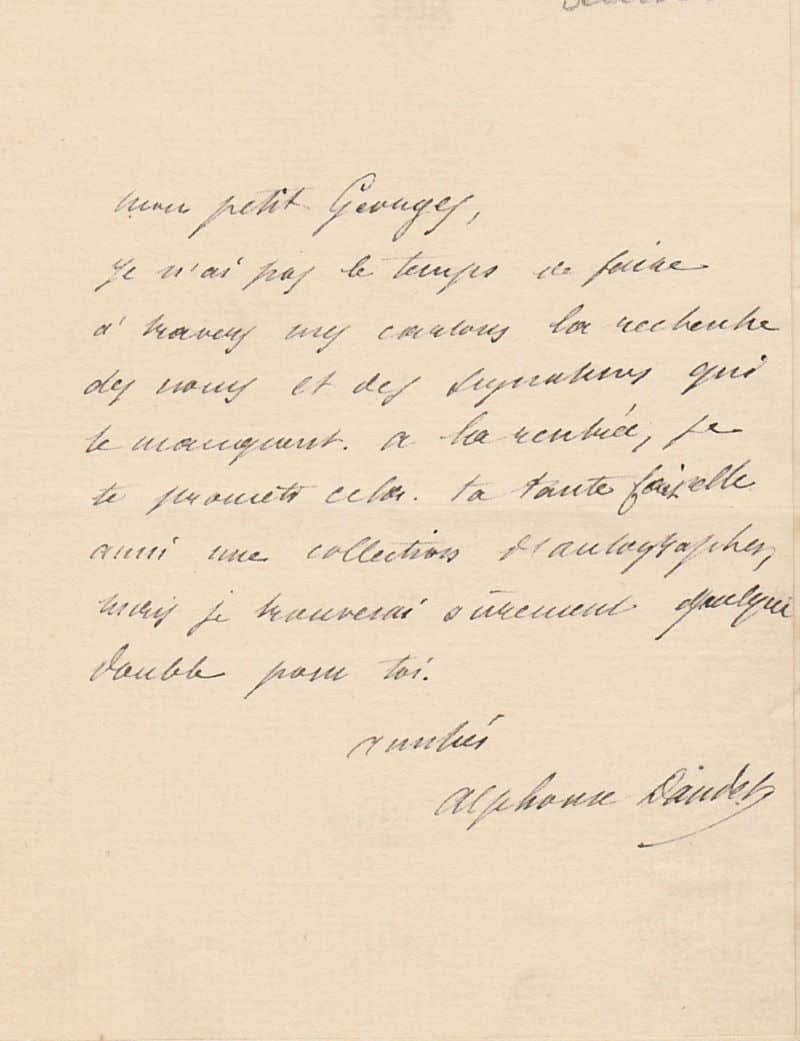 mon petit Georges,
je n'ai pas le temps de faire
à travers mes cartons la recherche
des noms et des signatures qui
te manquent. a la rentrée, je
te promets cela. ta tante fait, elle
aussi une collection d'autographes,
mais je trouverai sûrement quelque
double pour toi.
amitiés
Alphonse Daudet